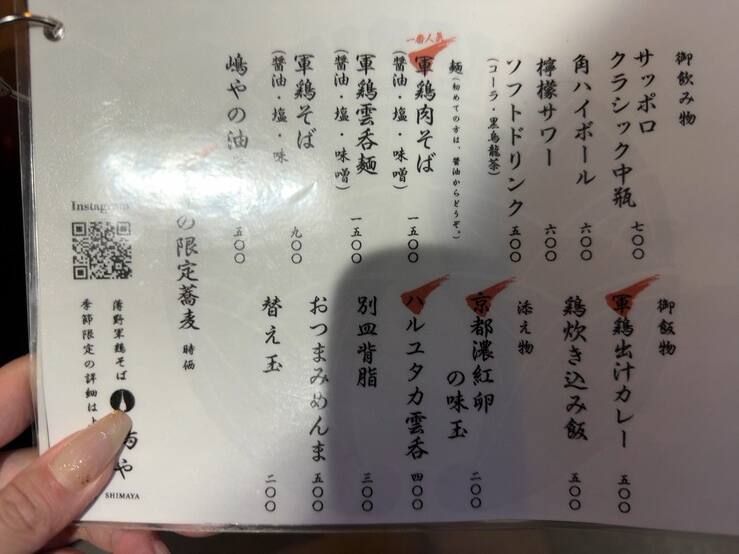 御飲み物
サッポロ
クラシック中瓶 七〇〇
角ハイボール 六〇〇
檸檬サワー 六〇〇
ソフトドリンク 五〇〇
(コーラ・黒烏龍茶)
麺(初めての方は、醤油からどうぞ。)
一番人気
軍鶏肉そば 一五〇〇
(醤油・塩・味噌)
軍鶏雲呑麺 一五〇〇
(醤油・塩・味噌)
軍鶏そば 九〇〇
(醤油・塩・味
嶋やの油 五〇〇
の限定蕎麦 時価
御飯物
軍鶏出汁カレー 五〇〇
鶏炊き込み飯 五〇〇
添え物
京都濃紅卵
の味玉 二〇〇
ハルユタカ雲呑 四〇〇
別皿背脂 三〇〇
おつまみめんま 五〇〇
替え玉 二〇〇
Instagram
薄野軍鶏そば
や
SHIMAYA
季節限定の詳細は